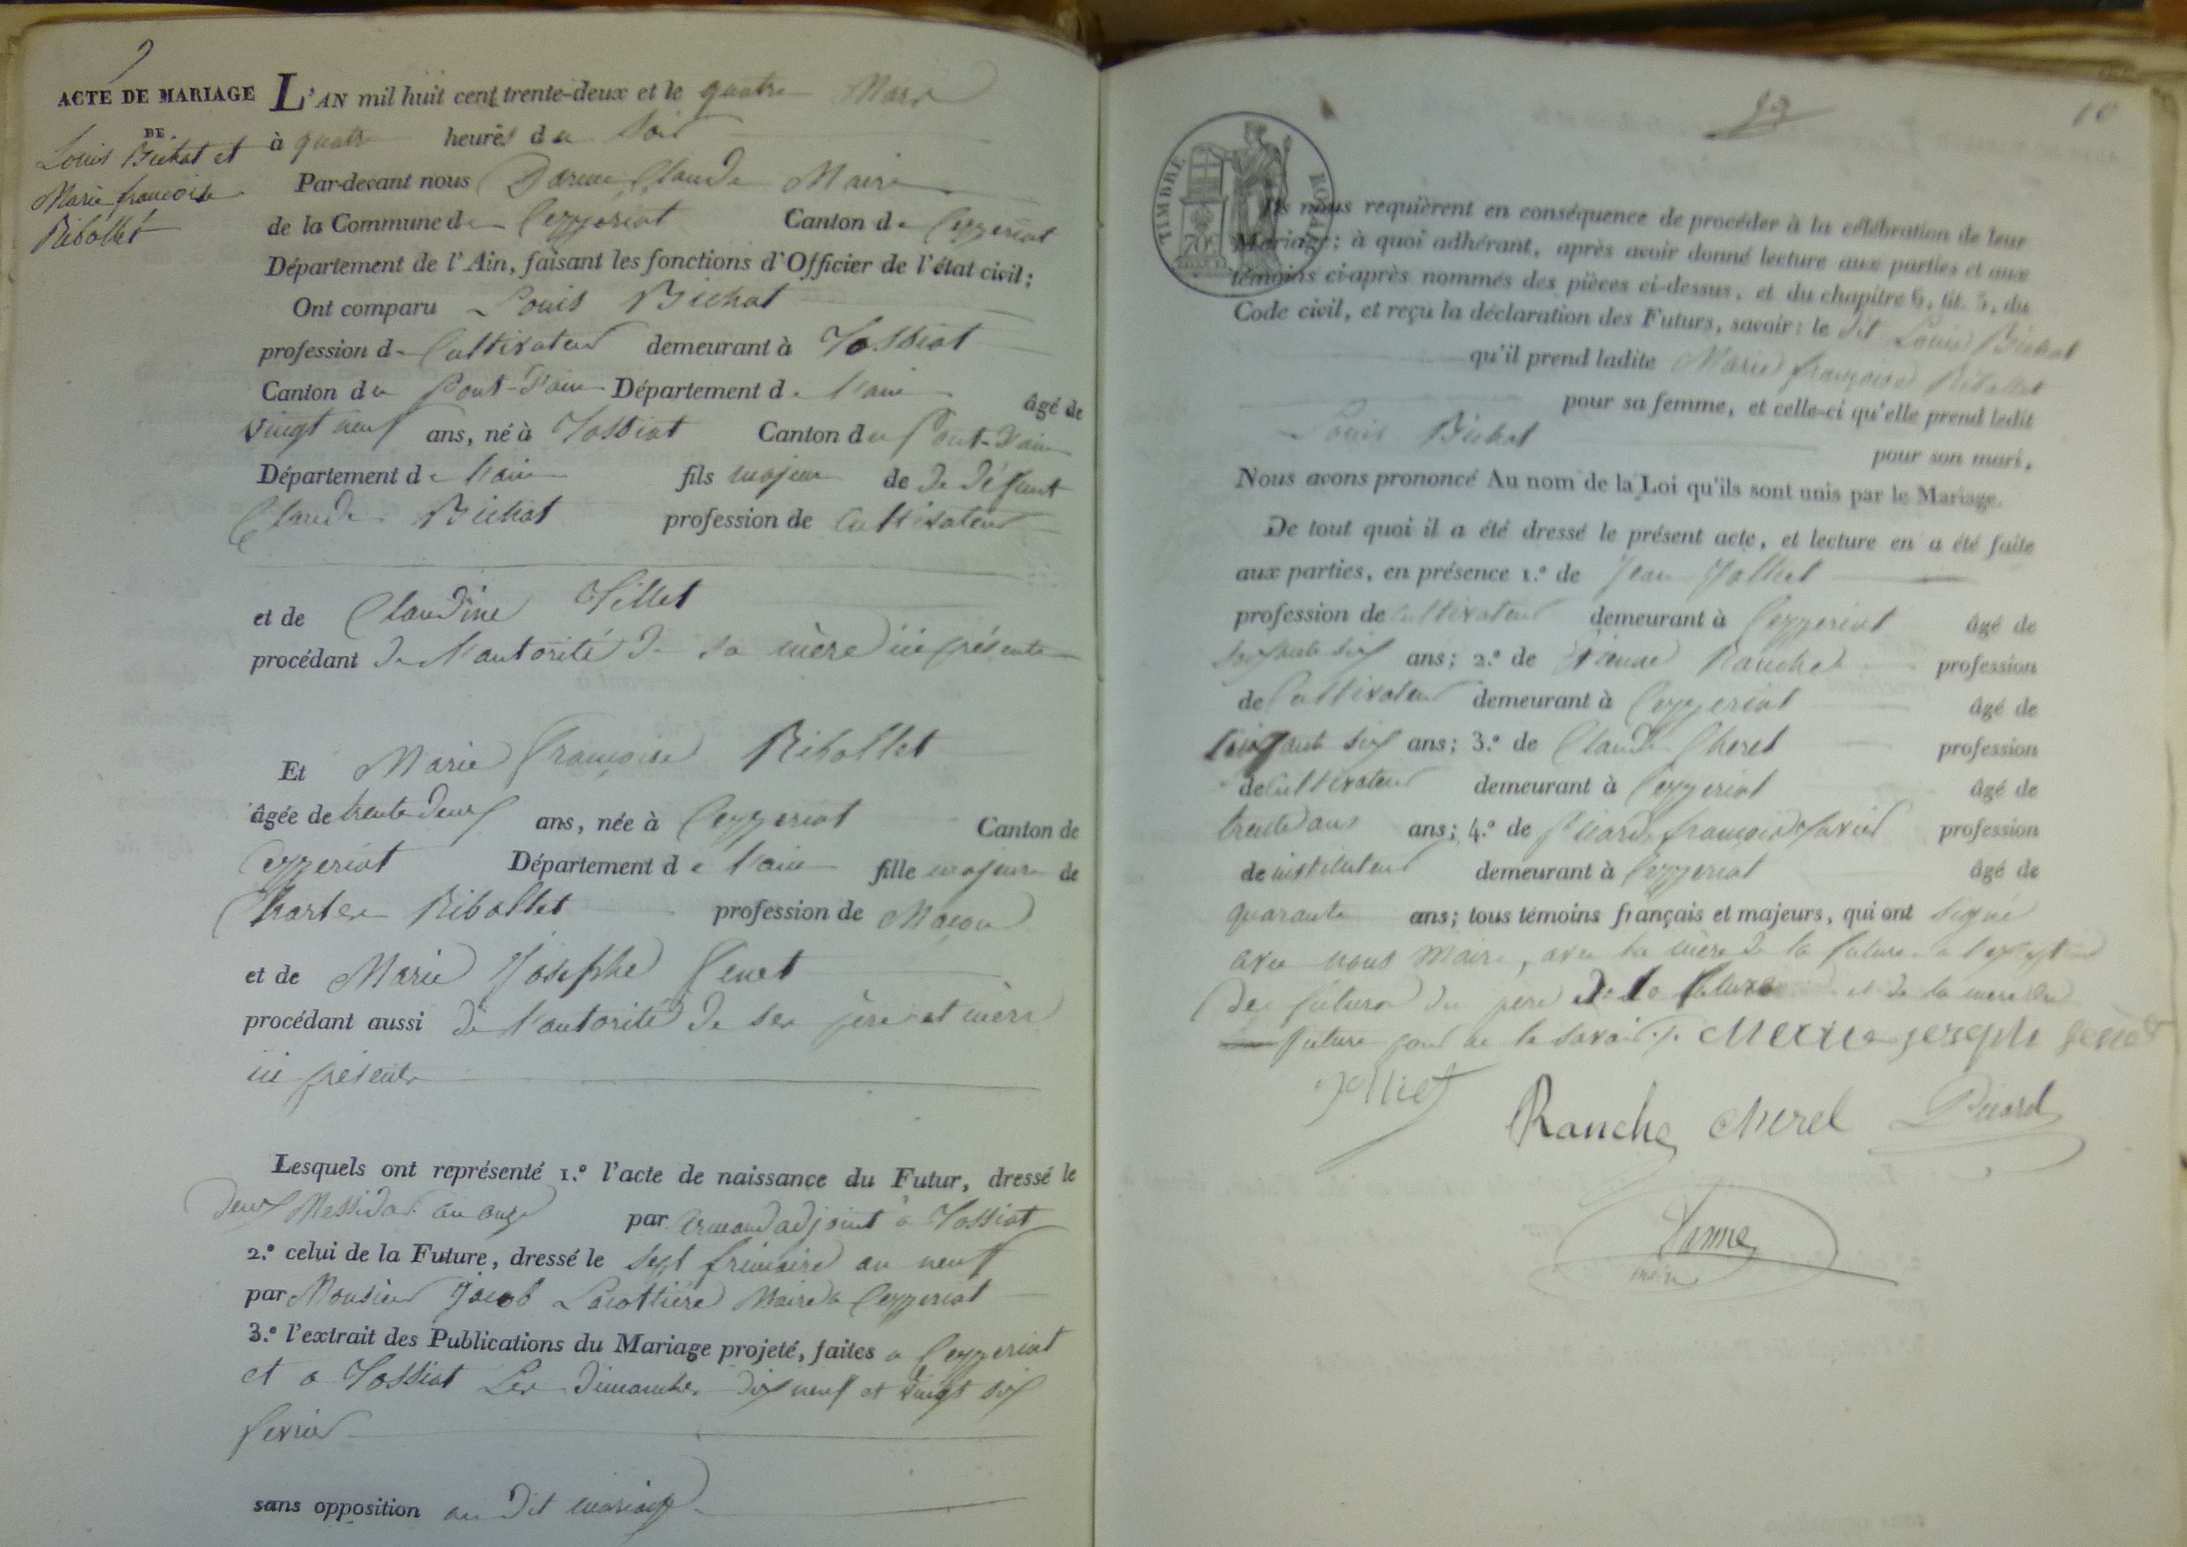 9
ACTE DE MARIAGE
DE
Louis Bichat et
Marie françoise
Ribollet
L'AN mil huit cent trente-deux et le quatre Mars
à quatre heures du Soir
Par-devant nous Claude Maire
de la Commune de Ceyzeriat Canton de Ceyzeriat
Département de l'Ain, faisant les fonctions d'Officier de l'état civil;
Ont comparu Louis Bichat
profession de Cultivateur demeurant à Tossiat
Canton du Pont-d'ain Département de l'ain âgé de
vingt neuf ans, né à Tossiat Canton du Pont-d'ain
Département de l'ain fils majeur de de défunt
Claude Bichat profession de Cultivateur
et de Claudine Tillet
procédant de l'autorité de sa mère ici présente
Et Marie françoise Ribollet
âgée de trente deux ans, née à Ceyzeriat Canton de
Ceyzeriat Département de l'ain fille majeure de
Ribollet profession de Maçon
et de Marie Josephe Genet
procédant aussi de l'autorité de ses père et mère
ici présents
Lesquels ont représenté 1.º l'acte de naissance du Futur, dressé le
deux Messidor an onze par adjoint à Tossiat
2.º celui de la Future, dressé le sept frimaire an neuf
par Monsieur Jacob Lacottière Maire à Ceyzeriat
3.º l'extrait des Publications du Mariage projeté, faites à Ceyzeriat
et à Tossiat Les dimanches dix neuf et vingt six
fevrier
sans opposition au dit mariage
10
TIMBRE ROYAL
Ils nous requièrent en conséquence de procéder à la célébration de leur
Mariage; à quoi adhérant, après avoir donné lecture aux parties et aux
témoins ci-après nommés des pièces ci-dessus, et du chapitre 6, tit. 5, du
Code civil, et reçu la déclaration des Futurs, savoir: le dit Louis Bichat
qu'il prend ladite Marie françoise Ribollet
pour sa femme, et celle-ci qu'elle prend ledit
Louis Bichat pour son mari,
Nous avons prononcé Au nom de la Loi qu'ils sont unis par le Mariage.
De tout quoi il a été dressé le présent acte, et lecture en a été faite
aux parties, en présence 1.º de Jean Jolliet
profession de Cultivateur demeurant à Ceyzeriat âgé de
soixante six ans; 2.º de Ranche profession
de Cultivateur demeurant à Ceyzeriat âgé de
six ans; 3.º de Claude Cherel profession
de Cultivateur demeurant à Ceyzeriat âgé de
trente ans; 4.º de Picard françois Xavier profession
de instituteur demeurant à Ceyzeriat âgé de
quarante ans; tous témoins français et majeurs, qui ont signé
avec nous Maire, avec la mère de la future à l'exception
des futurs du père de la future et de la mere du
future pour ne le savoir Marie joseph genet
jolliet
Ranche cherel Picard
maire